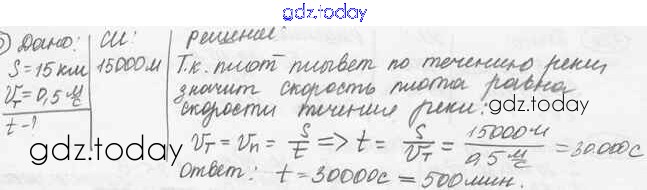 gdz.today
Дано: СИ: Решение:
S=15км 15000м Т.к. плот плывет по течению реки,
Vт=0,5 м/с значит скорость плота равна
t-? скорости течения реки:
gdz.today
Vт = Vп = S/t => t = S/Vт = 15000м / 0,5 м/с = 30000с
gdz.today
Ответ: t=30000с = 500мин.